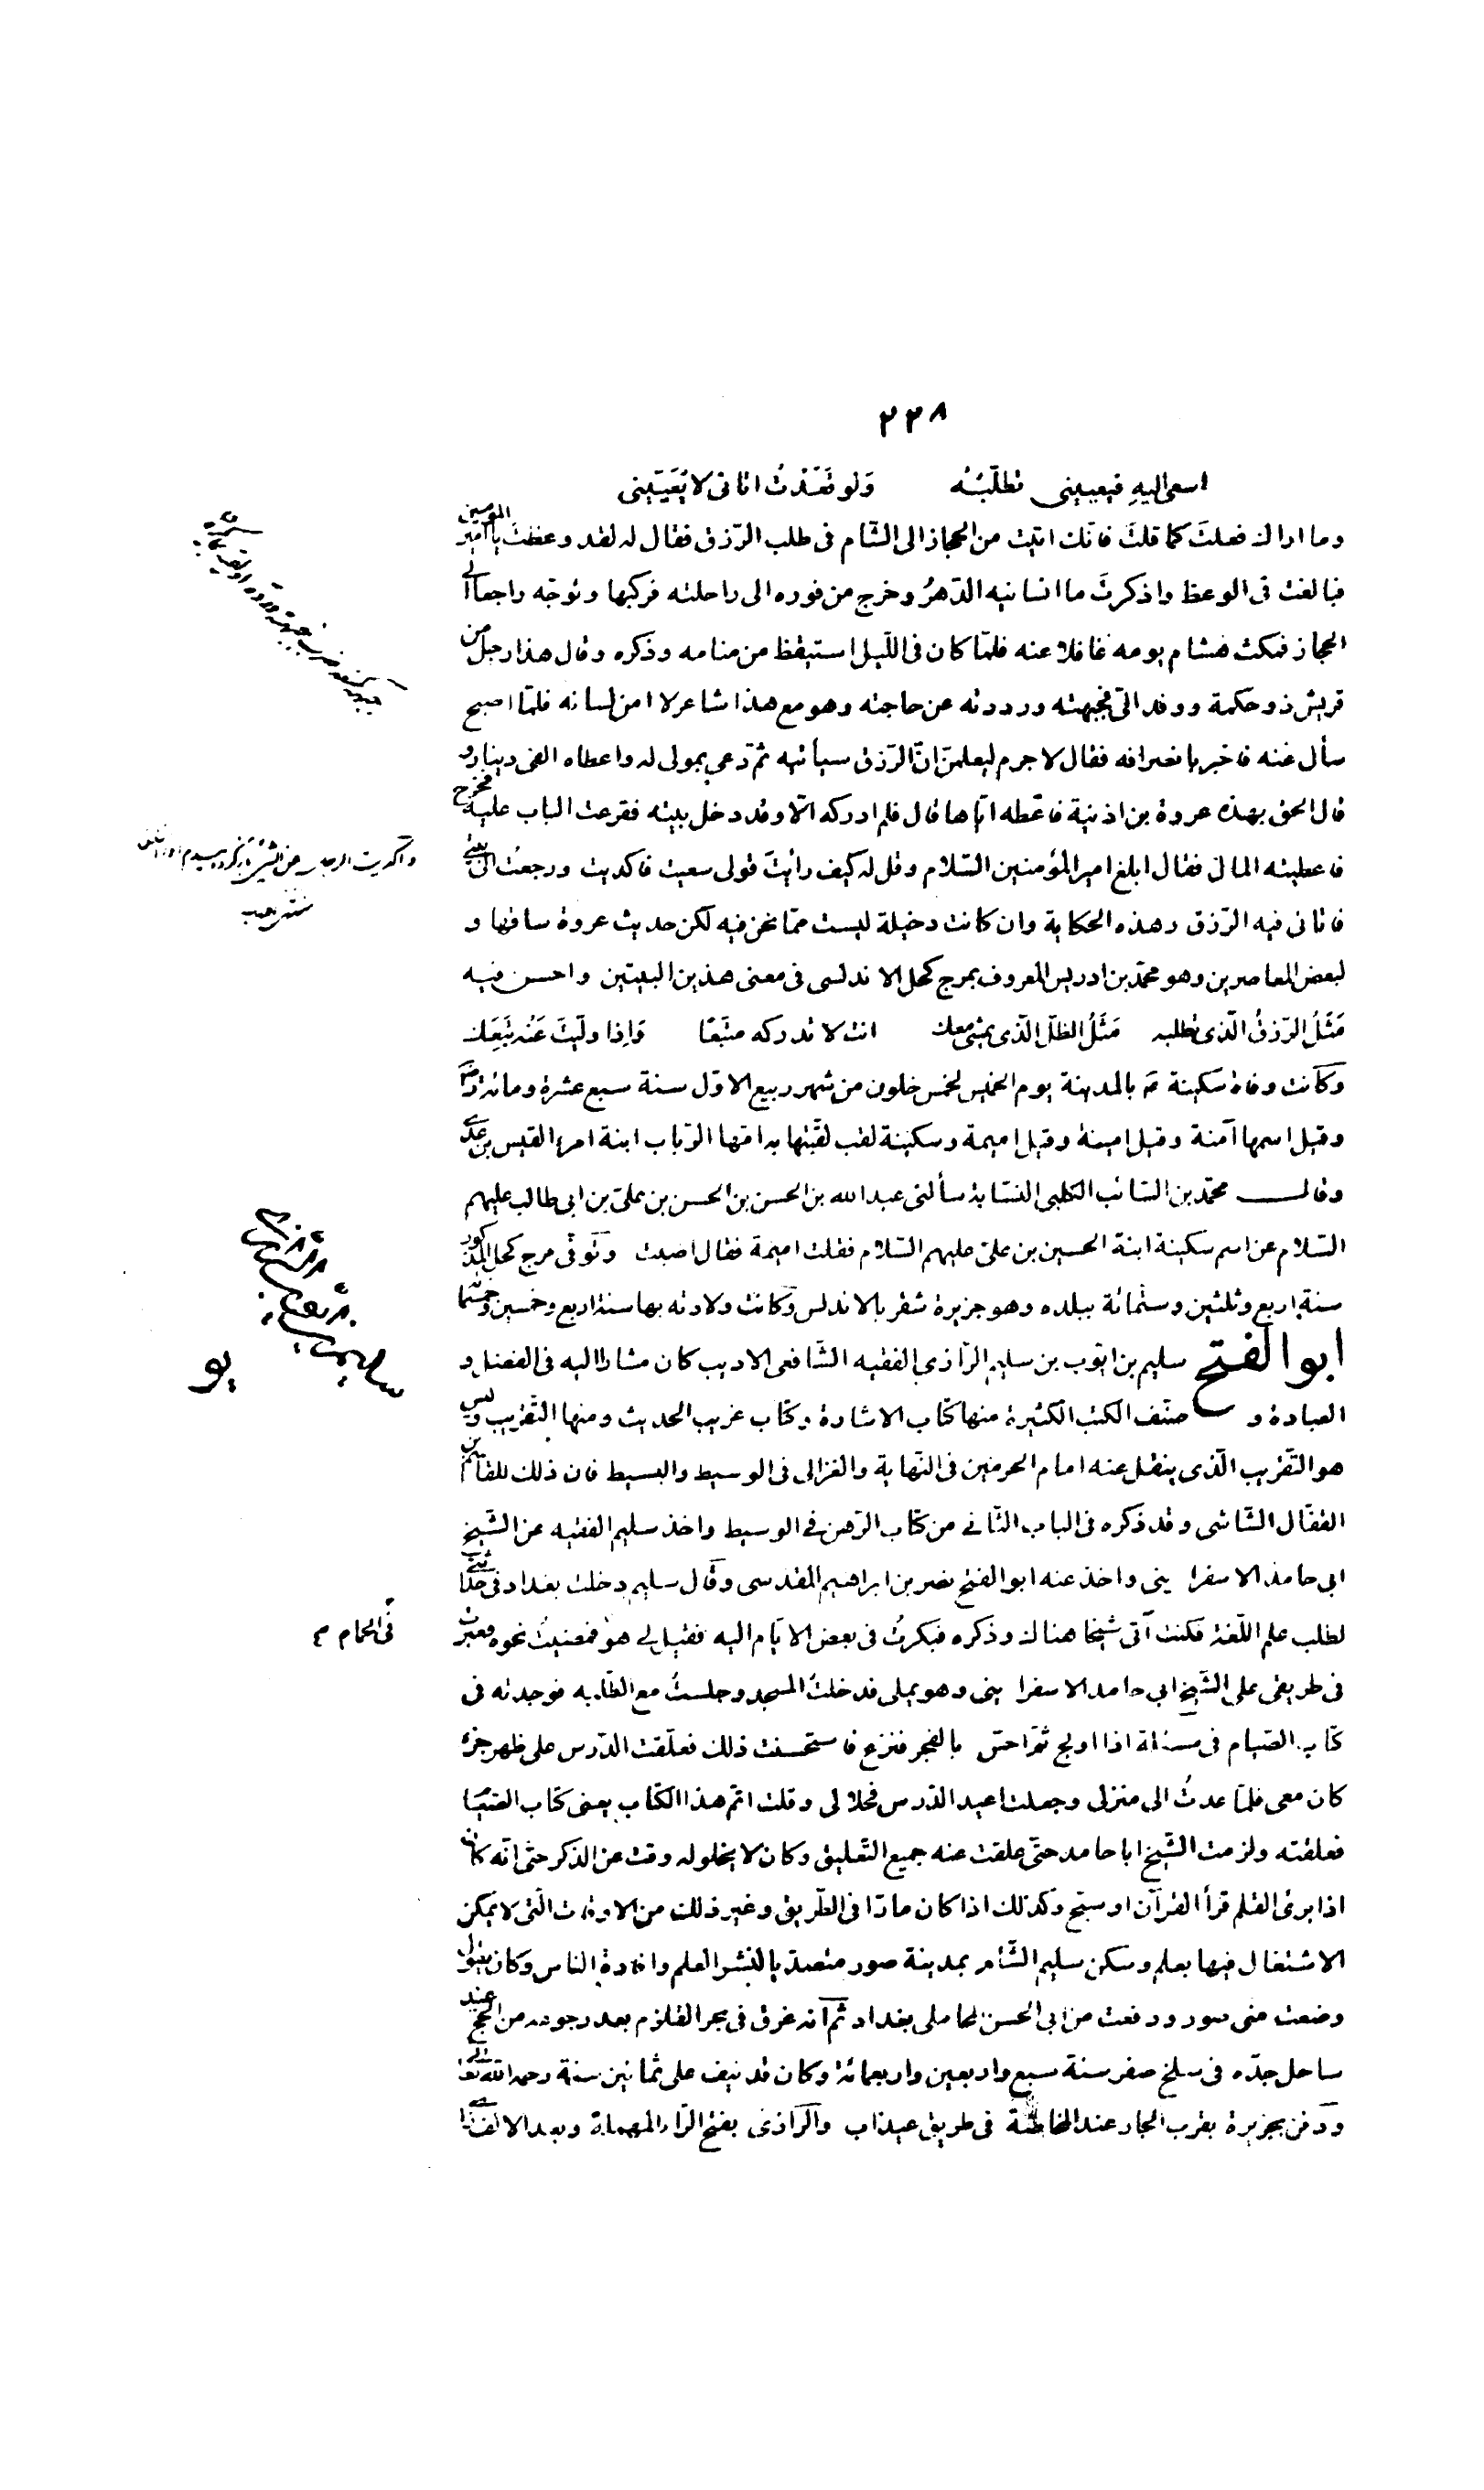 ٢٢٨
اسعى اليهِ فيعييني تطلّبُه وَلو قَعَدْتُ اتانى لا يُعَيّينى
وما اراك فعلتَ كما قلتَ فانّك اتيت من الحجاز الى الشّام فى طلب الرّزق فقال له لقد وعظتَ يا امير المؤمنين
فبالغت فى الوعظ واذكرتَ ما انسانيه الدّهرُ وخرج من فوره الى راحلته فركبها وتوجّه راجعا الى
الحجاز فمكث هشام يومه غافلا عنه فلمّا كان فى اللّيل استيقظ من منامه وذكره وقال هذا رجل من
قريش ذو حكمة ووفد الىّ فجبهته ورددته عن حاجته وهو مع هذا شاعر لا امن لسانه فلمّا اصبح
سأل عنه فاخبر بانصرافه فقال لا جرم ليعلمنّ انّ الرّزق سيأتيه ثمّ دعى بمولى له واعطاه الفى دينار و
قال الحق بهذه عروة بن اذنية فاعطه ايّاها قال فلم ادركه الّا وقد دخل بيته فقرعت الباب عليه فخرج
فاعطيته المال فقال ابلغ امير المؤمنين السّلام وقل له كيف رأيتَ قولى سعيت فاكديت ورجعتُ الى بيتى
فاتانى فيه الرّزق وهذه الحكاية وان كانت دخيلة ليست ممّا نحن فيه لكن حديث عروة ساقها و
لبعض المعاصرين وهو محمّد بن ادريس المعروف بمرج كحل الاندلسى فى معنى هذين البيتين واحسن فيه
مَثَلُ الرّزقُ الّذى تطلبه مَثَلُ الظلّ الّذى يمشى معك انت لا تدركه متّبعًا وَاِذا ولّيتَ عَنْه تَبِعَك
وكانت وفاة سكينة بالمدينة يوم الخميس لخمس خلون من شهر ربيع الاوّل سنة سبع عشرة ومائة
وقيل اسمها آمنة وقيل امينة وقيل اميمة وسكينة لقب لقّبتها به امّها الرّباب ابنة امرء القيس بن عدى
وقال محمّد بن السّائب الكلبى النسّابة سألنى عبد الله بن الحسن بن الحسن بن علىّ بن ابى طالب عليهم
السّلام عن اسم سكينة ابنة الحسين بن علىّ عليهم السّلام فقلت اميمة فقال اصبت وتوفّى مرج كحل المذكور
سنة اربع وثلثين وستمائة ببلده وهو جزيرة شقر بالاندلس وكانت ولادته بها سنة اربع وخمسين وخمسمائة
ابو الفتح سليم بن ايّوب بن سليم الرّازى الفقيه الشّافعى الاديب كان مشارا اليه فى الفضل و
العبادة و صنّف الكتب الكثيرة منها كتاب الاشارة وكتاب غريب الحديث ومنها التّقريب وليس
هو التّقريب الّذى ينقل عنه امام الحرمين فى النّهاية والغزالى فى الوسيط والبسيط فان ذلك للقاسم بن
القفّال الشّاشى وقد ذكره فى الباب الثّانى من كتاب الرّهن فى الوسيط واخذ سليم الفقيه عن الشّيخ
ابى حامد الاسفراينى واخذ عنه ابو الفتح نصر بن ابراهيم المقدسى وقال سليم دخلت بغداد فى حداثتى
لطلب علم اللّغة فكنت آتى شيخا هناك وذكره فبكرتُ فى بعض الايّام اليه فقيل لى هو فمضيتُ نحوه فعبرت
فى طريقى على الشّيخ ابى حامد الاسفراينى وهو يملى فدخلتُ المسجد وجلستُ مع الطّلبه فوجدته فى
كتاب الصّيام فى مسئلة اذا اولج ثمّ احسّ بالفجر فنزع فاستحسنت ذلك فعلّقت الدّرس على ظهر جزء
كان معى فلمّا عدتُ الى منزلى وجعلت اعيد الدّرس فحلا لى وقلت اتم هذا الكتاب يعنى كتاب الصّيام
فعلقته ولزمت الشّيخ ابا حامد حتّى علقت عنه جميع التّعليق وكان لا يخلو له وقت عن الذكر حتّى انّه كان
اذا برئ القلم قرأ القرآن او سبّح وكذلك اذا كان مارّا فى الطّريق وغير ذلك من الاوقات الّتى لا يمكن
الاشتغال فيها بعلم وسكن سليم الشّام بمدينة صور متصدّيا لنشر العلم وافادة النّاس وكان يقول
وضعت منى صور ورفعت من ابى الحسن المحاملى بغداد ثمّ انه غرق فى بحر القلزم بعد رجوعه من الحجّ عند
ساحل جدّه فى سلخ صفر سنة سبع واربعين واربعمائة وكان قد نيف على ثمانين سنة رحمه الله تعالى
ودفن بجزيرة بقرب الجار عند المخاضة فى طريق عيذاب والرّازى بفتح الرّاء المهملة وبعد الالف زاء
فى الحمام